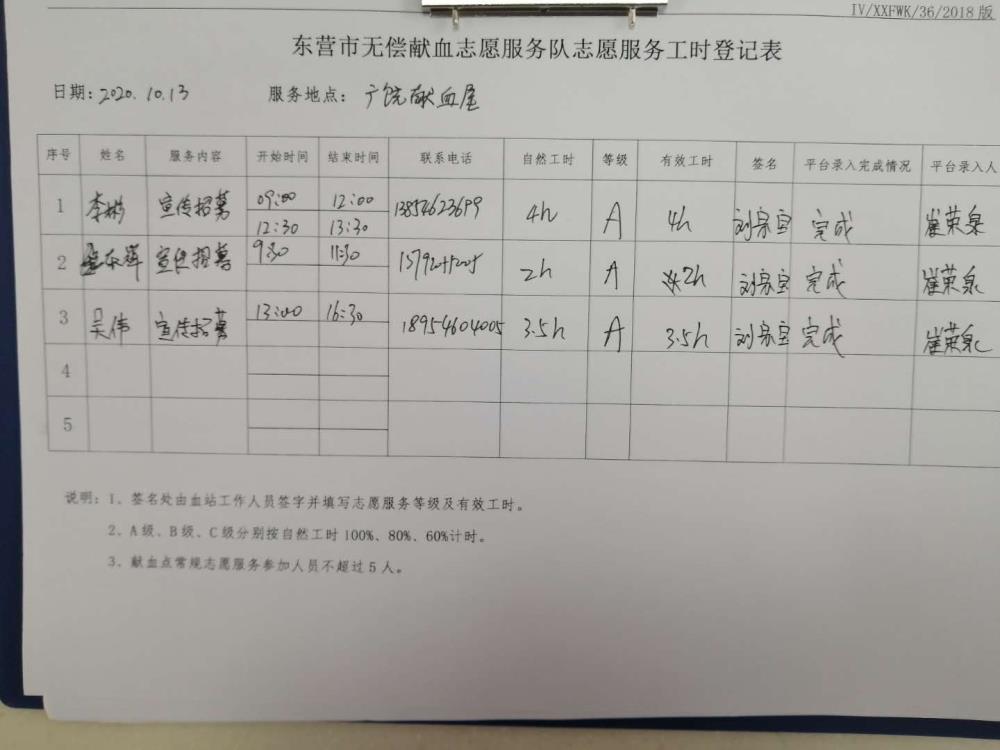 IV/XXFWK/36/2018 版
东营市无偿献血志愿服务队志愿服务工时登记表
日期: 2020.10.13 服务地点: 广饶献血屋
序号 姓名 服务内容 开始时间 结束时间 联系电话 自然工时 等级 有效工时 签名 平台录入完成情况 平台录入人
1 李彬 宣传招募 09:00 12:00 13854623699 4h A 4h 刘宗宝 完成 崔荣泉
12:30 13:30
2 宣传招募 9:30 11:30 2h A 2h 刘宗宝 完成 崔荣泉
3 吴伟 宣传招募 13:00 16:30 18954604005 3.5h A 3.5h 刘宗宝 完成 崔荣泉
4
5
说明: 1、签名处由血站工作人员签字并填写志愿服务等级及有效工时。
2、A级、B级、C级分别按自然工时 100%、80%、60%计时。
3、献血点常规志愿服务参加人员不超过 5 人。